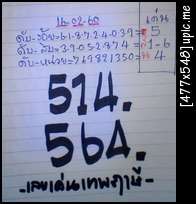 16-02-60
เด่น
ดับ-ร้อย-61872403 9= 5
ดับ-สิบ-37052874 = 1-6
ดับ-หน่วย-749821350= 4
514.
564.
-เลขเด่นเทพฤาษี-
[477x548]upic.me